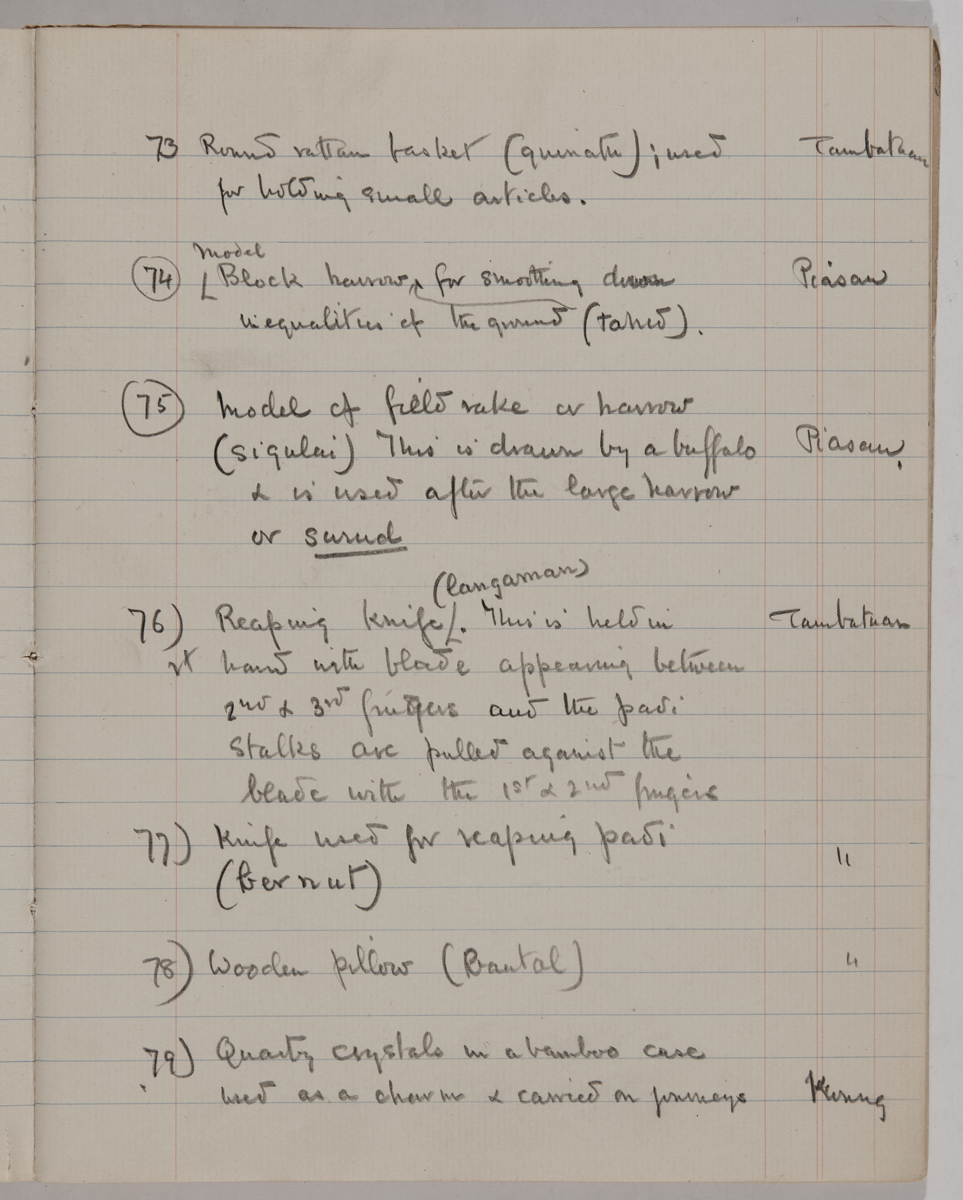 73 Round rattan basket (quinatu); used Tambatuan
for holding small articles.
Model
74 Block harrow, for smoothing down Piasau
inequalities of the ground (tahed).
75 Model of field rake or harrow
(sigulai) This is drawn by a buffalo Piasau.
& is used after the large harrow
or surud
(langaman)
76) Reaping knife. This is held in Tambatuan
rt hand with blade appearing between
2nd & 3rd fingers and the padi
stalks are pulled against the
blade with the 1st & 2nd fingers
77) Knife used for reaping padi "
(bernut)
78) Wooden pillow (Bantal) "
79) Quartz crystals in a bamboo case
used as a charm & carried on journeys